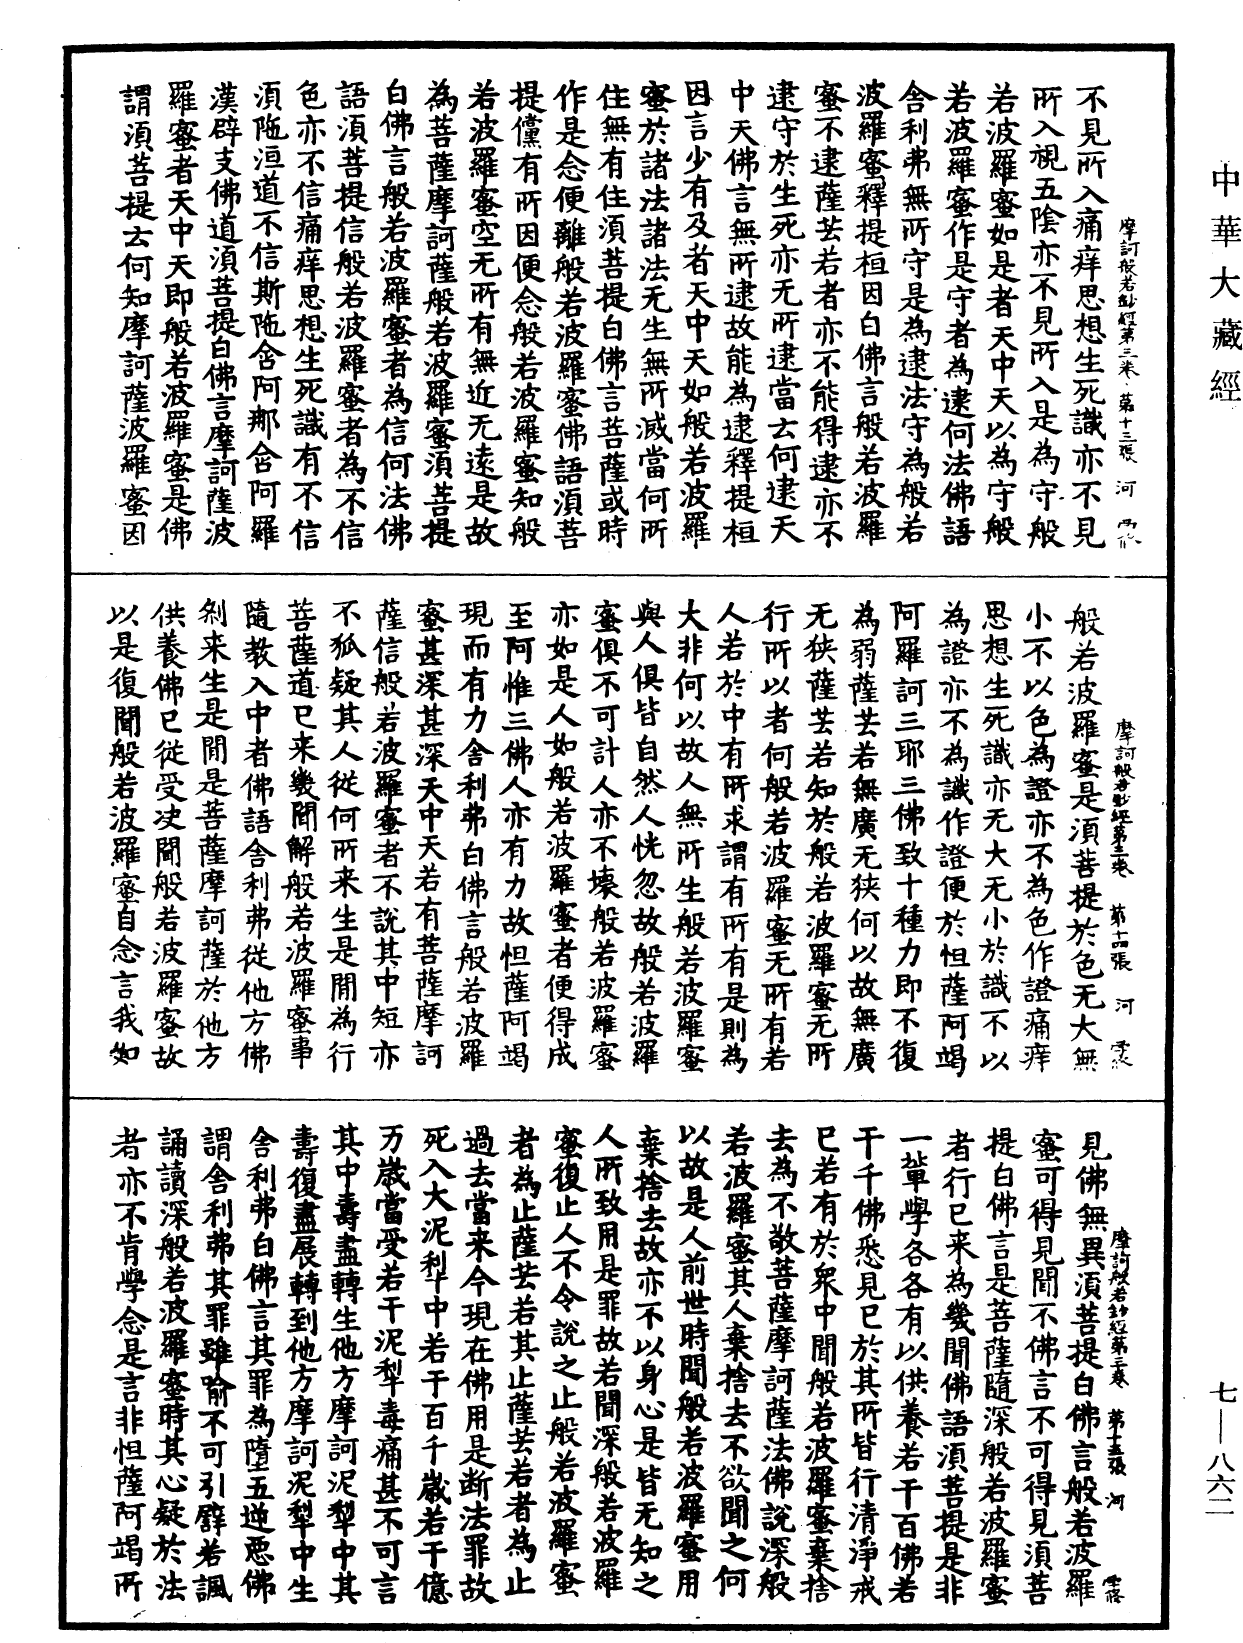 中華大藏經
摩訶般若鈔經第三卷 第十三張 河
不見所入痛痒思想生死識亦不見
所入視五陰亦不見所入是為守般
若波羅蜜如是者天中天以為守般
若波羅蜜作是守者為逮何法佛語
舍利弗無所守是為逮法守為般若
波羅蜜釋提桓因白佛言般若波羅
蜜不逮薩芸若者亦不能得逮亦不
逮守於生死亦无所逮當云何逮天
中天佛言無所逮故能為逮釋提桓
因言少有及者天中天如般若波羅
蜜於諸法諸法无生無所滅當何所
住無有住須菩提白佛言菩薩或時
作是念便離般若波羅蜜佛語須菩
提儻有所因便念般若波羅蜜知般
若波羅蜜空无所有無近无遠是故
為菩薩摩訶薩般若波羅蜜須菩提
白佛言般若波羅蜜者為信何法佛
語須菩提信般若波羅蜜者為不信
色亦不信痛痒思想生死識有不信
須陁洹道不信斯陁含阿那含阿羅
漢辟支佛道須菩提白佛言摩訶薩波
羅蜜者天中天即般若波羅蜜是佛
謂須菩提云何知摩訶薩波羅蜜因
摩訶般若鈔經第三卷 第十四張 河
般若波羅蜜是須菩提於色无大無
小不以色為證亦不為色作證痛痒
思想生死識亦无大无小於識不以
為證亦不為識作證便於怛薩阿竭
阿羅訶三耶三佛致十種力即不復
為弱薩芸若無廣无狹何以故無廣
无狹薩芸若知於般若波羅蜜无所
行所以者何般若波羅蜜无所有若
人若於中有所求謂有所有是則為
大非何以故人無所生般若波羅蜜
與人俱皆自然人恍忽故般若波羅
蜜俱不可計人亦不壞般若波羅蜜
亦如是人如般若波羅蜜者便得成
至阿惟三佛人亦有力故怛薩阿竭
現而有力舍利弗白佛言般若波羅
蜜甚深甚深天中天若有菩薩摩訶
薩信般若波羅蜜者不說其中短亦
不狐疑其人從何所來生是間為行
菩薩道已来幾聞解般若波羅蜜事
隨教入中者佛語舍利弗從他方佛
剎来生是間是菩薩摩訶薩於他方
供養佛已從受决聞般若波羅蜜故
以是復聞般若波羅蜜自念言我如
摩訶般若鈔經第三卷 第十五張 河
見佛無異須菩提白佛言般若波羅
蜜可得見聞不佛言不可得見須菩
提白佛言是菩薩隨深般若波羅蜜
者行已来為幾聞佛語須菩提是非
一輩學各各有以供養若干百佛若
干千佛悉見已於其所皆行清淨戒
已若有於衆中聞般若波羅蜜棄捨
去為不敬菩薩摩訶薩法佛說深般
若波羅蜜其人棄捨去不欲聞之何
以故是人前世時聞般若波羅蜜用
棄捨去故亦不以身心是皆无知之
人所致用是罪故若聞深般若波羅
蜜復止人不令說之止般若波羅蜜
者為止薩芸若其止薩芸若者為止
過去當来今現在佛用是断法罪故
死入大泥利中若干百千歲若干億
万歲當受若干泥犁毒痛甚不可言
其中壽盡轉生他方摩訶泥犁中其
壽復盡展轉到他方摩訶泥犁中生
舍利弗白佛言其罪為墮五逆惡佛
謂舍利弗其罪雖喻不可引譬若諷
誦讀深般若波羅蜜時其心疑於法
者亦不肯學念是言非怛薩阿竭所
七—八六二